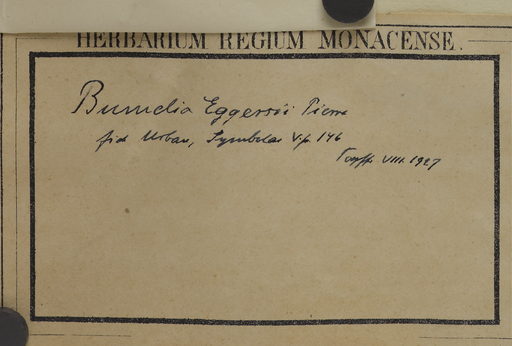 HERBARIUM REGIUM MONACENSE.
Bumelia Eggersii Pierre
fid. Urban, Symbolae V. p. 146
VIII. 1927